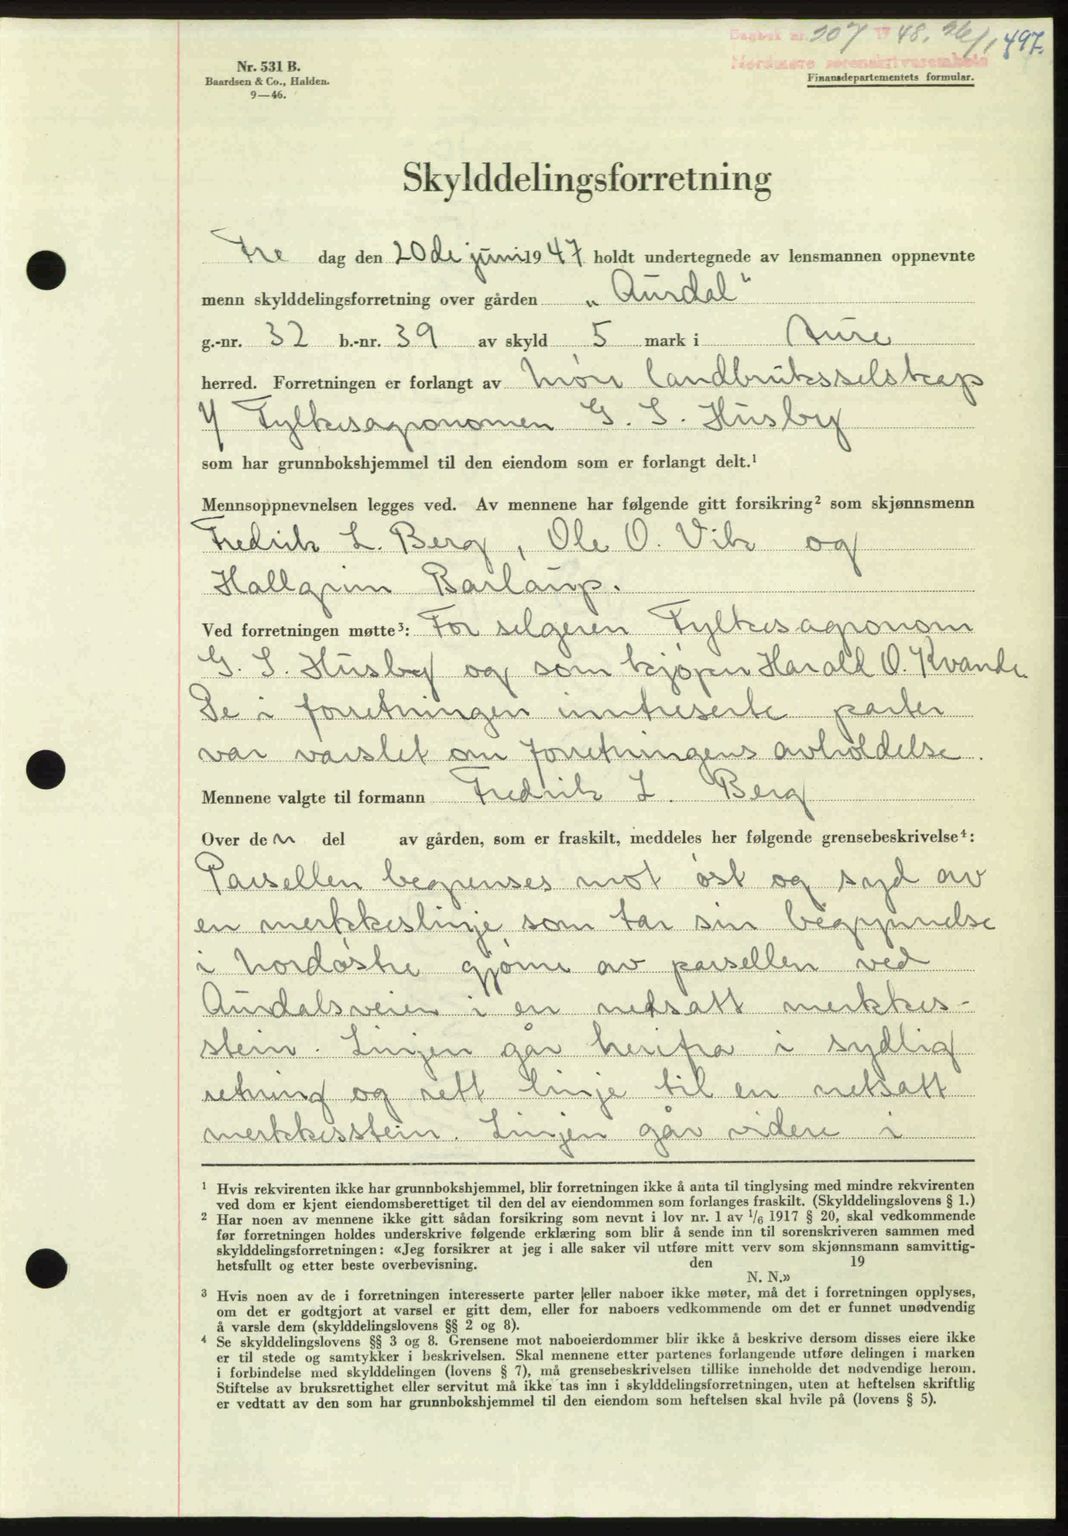 Dagbok nr. 207 1948. 26/1 497.
Nordmøre sorenskriverembete
Nr. 531 B.
Baardsen & Co., Halden.
9—46.
Finansdepartementets formular.
Skylddelingsforretning
Fre dag den 20de juni 1947 holdt undertegnede av lensmannen oppnevnte
menn skylddelingsforretning over gården „Aurdal"
g.-nr. 32 b.-nr. 39 av skyld 5 mark i Aure
herred. Forretningen er forlangt av Møre landbruksselskap
v/ Fylkesagronomen G. S. Husby
som har grunnbokshjemmel til den eiendom som er forlangt delt.¹
Mennsoppnevnelsen legges ved. Av mennene har følgende gitt forsikring² som skjønnsmenn
Fredrik L. Berg, Ole O. Vik og
Hallgrim Barlaup.
Ved forretningen møtte³: For selgeren Fylkesagronom
G. S. Husby og som kjøper Harald O. Kvande
De i forretningen inntreserte parter
var varslet om forretningens avholdelse.
Mennene valgte til formann Fredrik L. Berg
Over de n del av gården, som er fraskilt, meddeles her følgende grensebeskrivelse⁴:
Parsellen begrenses mot øst og syd av
en merkkeslinje som tar sin begynnelse
i Nordøstre hjørne av parsellen ved
Aurdalsveien i en nedsatt merkkes-
stein. Linjen går herifra i sydlig
retning og rett linje til en netsatt
merkkesstein. Linjen går videre i
¹ Hvis rekvirenten ikke har grunnbokshjemmel, blir forretningen ikke å anta til tinglysing med mindre rekvirenten
ved dom er kjent eiendomsberettiget til den del av eiendommen som forlanges fraskilt. (Skylddelingslovens § 1.)
² Har noen av mennene ikke gitt sådan forsikring som nevnt i lov nr. 1 av 1/6 1917 § 20, skal vedkommende
før forretningen holdes underskrive følgende erklæring som blir å sende inn til sorenskriveren sammen med
skylddelingsforretningen: «Jeg forsikrer at jeg i alle saker vil utføre mitt verv som skjønnsmann samvittig-
hetsfullt og etter beste overbevisning. den 19
N. N.»
³ Hvis noen av de i forretningen interesserte parter eller naboer ikke møter, må det i forretningen opplyses,
om det er godtgjort at varsel er gitt dem, eller for naboers vedkommende om det er funnet unødvendig
å varsle dem (skylddelingslovens §§ 2 og 8).
⁴ Se skylddelingslovens §§ 3 og 8. Grensene mot naboeierdommer blir ikke å beskrive dersom disses eiere ikke
er til stede og samtykker i beskrivelsen. Skal mennene etter partenes forlangende utføre delingen i marken
i forbindelse med skylddelingen (lovens § 7), må grensebeskrivelsen tillike inneholde det nødvendige herom.
Stiftelse av bruksrettighet eller servitut må ikke tas inn i skylddelingsforretningen, uten at heftelsen skriftlig
er vedtatt av den som har grunnbokshjemmel til den eiendom som heftelsen skal hvile på (lovens § 5).